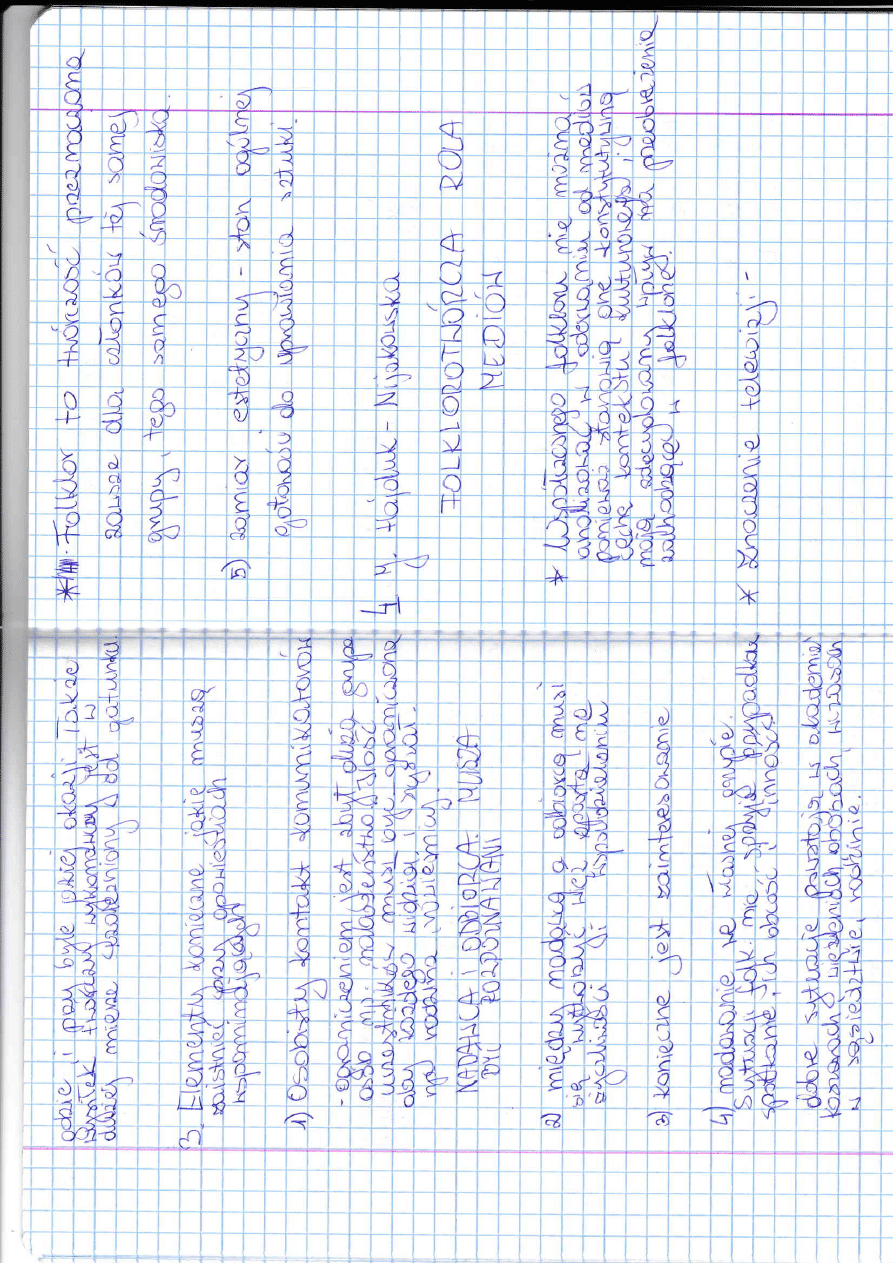 gdzie i przy byle jakiej okazji. Także
kształt twórczy wykonawczy jest w
dużej mierze uzależniony od gatunku.
3. Elementy konieczne jakie muszą
zaistnieć przy opowieściach
wspomnieniowych
1) Osobisty kontakt komunikatorów
- ograniczeniem jest zbyt duża grupa
osób np. nabożeństwo, ilość
uczestników musi być ograniczona
aby każdego widzieć i słyszał.
np. rodzina, rówieśnicy.
NADAWCA I ODBIORCA MUSZĄ
BYĆ ROZPOZNAWANI
2) między nadawcą a odbiorcą musi
się wytworzyć więź oparta na
życzliwości i współdzieleniu
3) konieczne jest zainteresowanie
4) nadawanie we własnej grupie.
Sytuacji folk. nie sprzyja przypadkowe
spotkanie, ich obcość i inność
dobre sytuacje powstają w akademiu
koszarach, więzieniach, obozach, wczasach
w sąsiedztwie, rodzinie.
* Folklor to twórczość przeznaczona
zawsze dla członków tej samej
grupy, tego samego środowiska.
5) zamiar estetyczny - stan ogólnej
gotowości do uprawiania sztuki.
J. Hajduk-Nijakowska
FOLKLOROTWÓRCZA ROLA
MEDIÓW
* Współczesnego folkloru nie można
analizować w oderwaniu od mediów
ponieważ stanowią one konstytutywną
cechę kontekstu kulturowego i
mają zdecydowany wpływ na przeobrażenia
zachodzące w folklorze.
* Znaczenie telewizji -